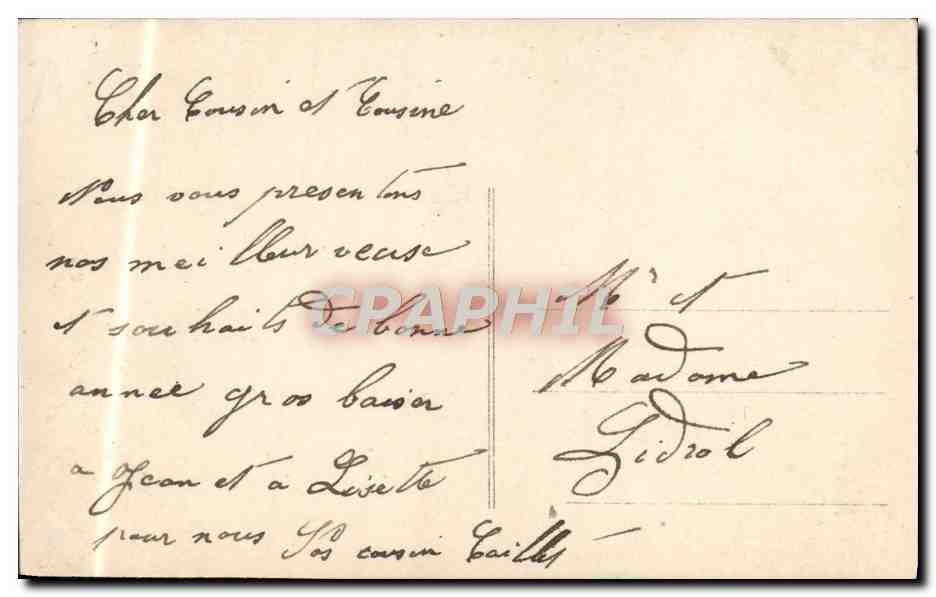 Cher Cousin et Cousine
Nous vous presentons
nos meilleur veuse
et souhaits de bonne
annee gros baiser
a Jean et a Lisette
pour nous Vos cousin
Mr et
Madame
CPAPHIL